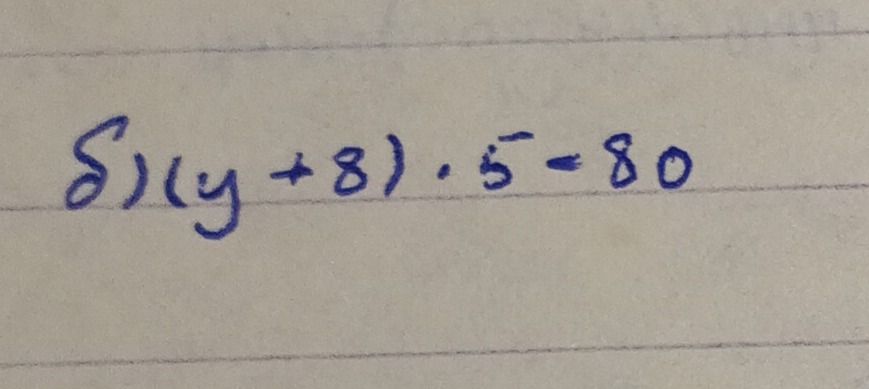 б) (y + 8) · 5 = 80